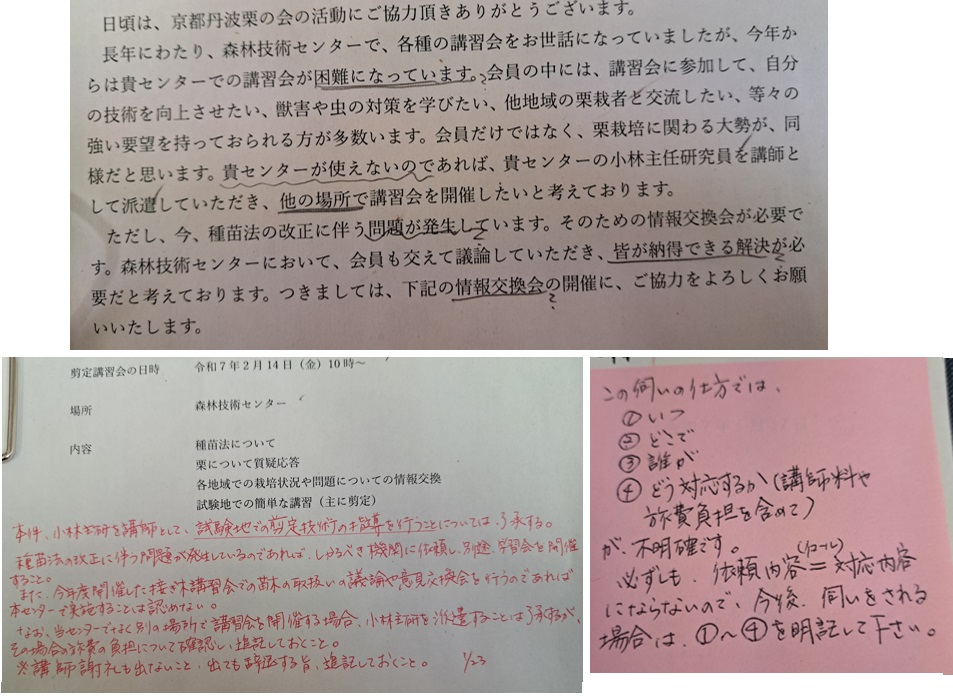 日頃は、京都丹波栗の会の活動にご協力頂きありがとうございます。
長年にわたり、森林技術センターで、各種の講習会をお世話になっていましたが、今年か
らは貴センターでの講習会が困難になっています。会員の中には、講習会に参加して、自分
の技術を向上させたい、獣害や虫の対策を学びたい、他地域の栗栽者と交流したい、等々の
強い要望を持っておられる方が多数います。会員だけではなく、栗栽培に関わる大勢が、同
様だと思います。貴センターが使えないのであれば、貴センターの小林主任研究員を講師と
して派遣していただき、他の場所で講習会を開催したいと考えております。
ただし、今、種苗法の改正に伴う問題が発生しています。そのための情報交換会が必要で
す。森林技術センターにおいて、会員も交えて議論していただき、皆が納得できる解決が必
要だと考えております。つきましては、下記の情報交換会の開催に、ご協力をよろしくお願
いいたします。
剪定講習会の日時 令和7年2月14日（金）10時～
場所 森林技術センター
内容 種苗法について
栗について質疑応答
各地域での栽培状況や問題についての情報交換
試験地での簡単な講習（主に剪定）
本件、小林主研を講師として、試験地での剪定技術の指導を行うことについては了承する。
種苗法の改正に伴う問題が発生しているのであれば、しかるべき機関に依頼し、別途、学習会を開催
すること。
また、今年度開催した接ぎ木講習会での苗木の取扱いの議論や意見交換会を行うのであれば
本センターで実施することは認めない。
なお、当センターでなく別の場所で講習会を開催する場合、小林主研を派遣することは了承するが、
その場合の旅費の負担について確認し、追記しておくこと。
※講師謝礼も出ないこと、出ても辞退する旨、追記しておくこと。 1/23
この伺いの仕方では、
①いつ
②どこで
③誰が
④どう対応するか（講師料や
旅費負担を含めて）
が、不明確です。
必ずしも、依頼内容＝（イコール）対応内容
にならないので、今後、伺いをされる
場合は、①～④を明記して下さい。